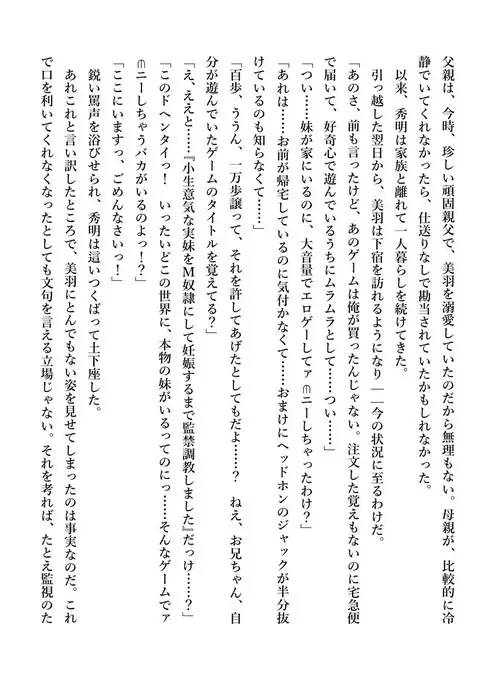 父親は、今時、珍しい頑固親父で、美羽を溺愛していたのだから無理もない。母親が、比較的に冷
静でいてくれなかったら、仕送りなしで勘当されていたかもしれなかった。
以来、秀明は家族と離れて一人暮らしを続けてきた。
引っ越した翌日から、美羽は下宿を訪れるようになり――今の状況に至るわけだ。
「あのさ、前も言ったけど、あのゲームは俺が買ったんじゃない。注文した覚えもないのに宅急便
で届いて、好奇心で遊んでいるうちにムラムラとして……つい……」
「つい……妹が家にいるのに、大音量でエロゲーしてァ⋒ニーしちゃったわけ？」
「あれは……お前が帰宅しているのに気付かなくて……おまけにヘッドホンのジャックが半分抜
けているのも知らなくて……」
「百歩、ううん、一万歩譲って、それを許してあげたとしてもだよ……？　ねえ、お兄ちゃん、自
分が遊んでいたゲームのタイトルを覚えてる？」
「え、ええと……『小生意気な実妹をＭ奴隷にして妊娠するまで監禁調教しました』だっけ……？」
「このドヘンタイっ！　いったいどこの世界に、本物の妹がいるってのにっ……そんなゲームでァ
⋒ニーしちゃうバカがいるのよっ！？」
「ここにいますっ、ごめんなさいっ！」
鋭い罵声を浴びせられ、秀明は這いつくばって土下座した。
あれこれと言い訳したところで、美羽にとんでもない姿を見せてしまったのは事実なのだ。これ
で口を利いてくれなくなったとしても文句を言える立場じゃない。それを考れば、たとえ監視のた